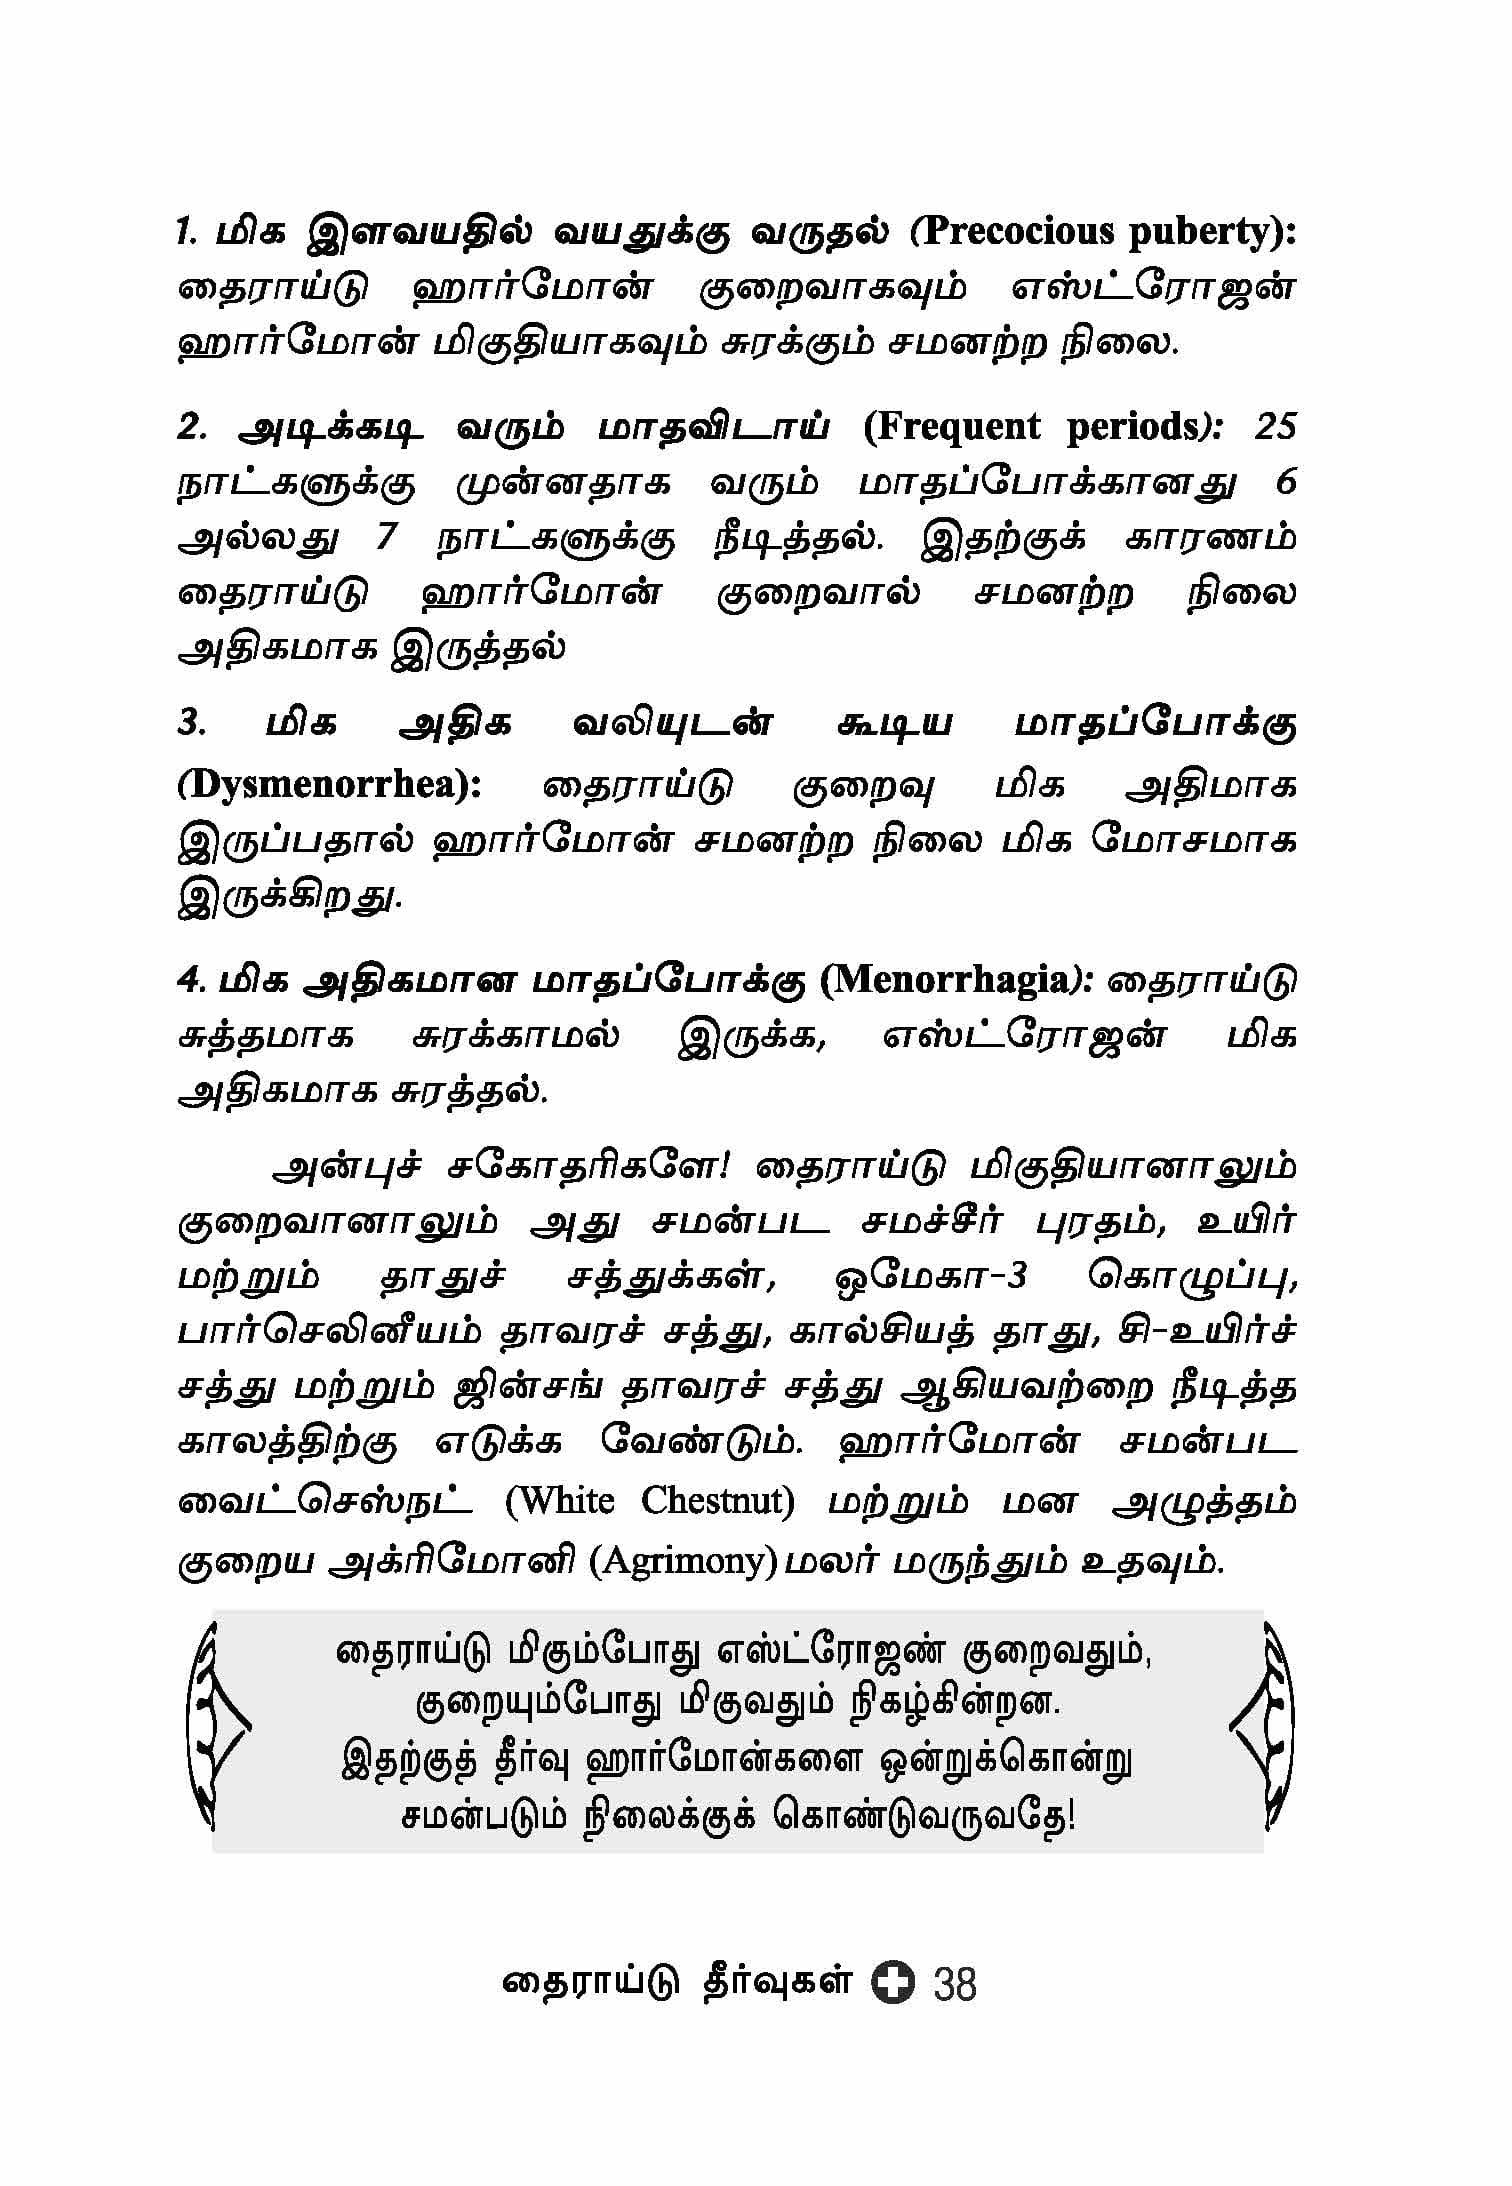 1. மிக இளவயதில் வயதுக்கு வருதல் (Precocious puberty):
தைராய்டு ஹார்மோன் குறைவாகவும் எஸ்ட்ரோஜன்
ஹார்மோன் மிகுதியாகவும் சுரக்கும் சமனற்ற நிலை.
2. அடிக்கடி வரும் மாதவிடாய் (Frequent periods): 25
நாட்களுக்கு முன்னதாக வரும் மாதப்போக்கானது 6
அல்லது 7 நாட்களுக்கு நீடித்தல். இதற்குக் காரணம்
தைராய்டு ஹார்மோன் குறைவால் சமனற்ற நிலை
அதிகமாக இருத்தல்
3. மிக அதிக வலியுடன் கூடிய மாதப்போக்கு
(Dysmenorrhea): தைராய்டு குறைவு மிக அதிமாக
இருப்பதால் ஹார்மோன் சமனற்ற நிலை மிக மோசமாக
இருக்கிறது.
4. மிக அதிகமான மாதப்போக்கு (Menorrhagia): தைராய்டு
சுத்தமாக சுரக்காமல் இருக்க, எஸ்ட்ரோஜன் மிக
அதிகமாக சுரத்தல்.
அன்புச் சகோதரிகளே! தைராய்டு மிகுதியானாலும்
குறைவானாலும் அது சமன்பட சமச்சீர் புரதம், உயிர்
மற்றும் தாதுச் சத்துக்கள், ஒமேகா-3 கொழுப்பு,
பார்செலினீயம் தாவரச் சத்து, கால்சியத் தாது, சி-உயிர்ச்
சத்து மற்றும் ஜின்சங் தாவரச் சத்து ஆகியவற்றை நீடித்த
காலத்திற்கு எடுக்க வேண்டும். ஹார்மோன் சமன்பட
வைட்செஸ்நட் (White Chestnut) மற்றும் மன அழுத்தம்
குறைய அக்ரிமோனி (Agrimony) மலர் மருந்தும் உதவும்.
தைராய்டு மிகும்போது எஸ்ட்ரோஜண் குறைவதும்,
குறையும்போது மிகுவதும் நிகழ்கின்றன.
இதற்குத் தீர்வு ஹார்மோன்களை ஒன்றுக்கொன்று
சமன்படும் நிலைக்குக் கொண்டுவருவதே!
தைராய்டு தீர்வுகள் 38